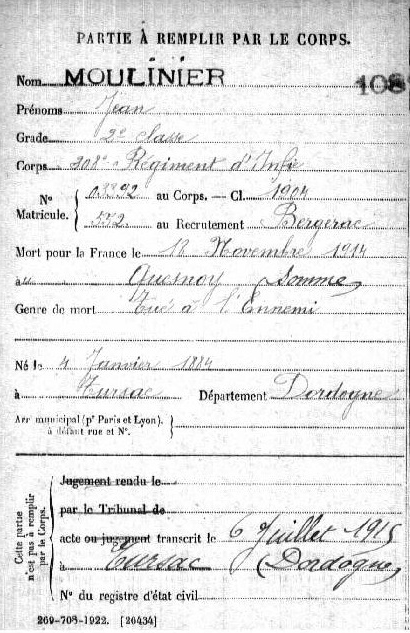 PARTIE À REMPLIR PAR LE CORPS.
Nom MOULINIER 108
Prénoms Jean
Grade 2e classe
Corps 208e Régiment d'Infie
No Matricule. { 03392 au Corps. — Cl. 1904
572 au Recrutement Bergerac
Mort pour la France le 18 Novembre 1914
à Quesnoy (Somme)
Genre de mort Tué à l'Ennemi
Né le 4 Janvier 1884
à Tursac Département Dordogne
Arr municipal (pr Paris et Lyon), à défaut rue et No. }
Cette partie n'est pas à remplir par le Corps.
Jugement rendu le
par le Tribunal de
acte ou jugement transcrit le 6 Juillet 1915
à Tursac (Dordogne)
No du registre d'état civil
269-708-1922. [26434]